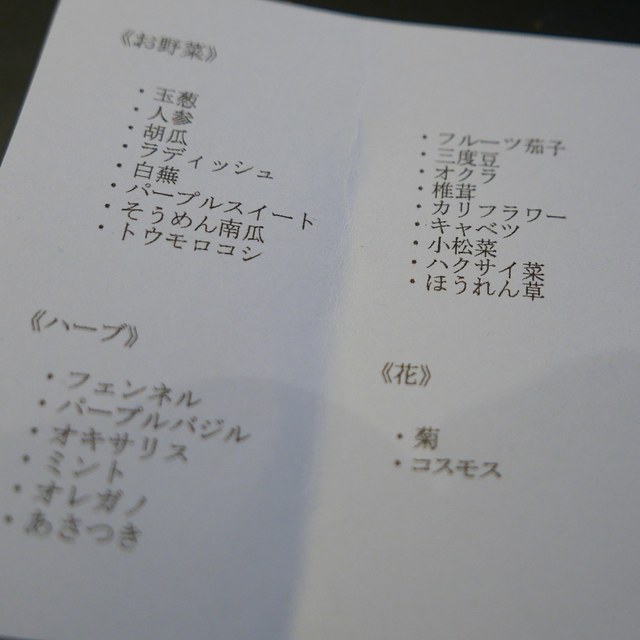 《お野菜》
・玉葱
・人参
・胡瓜
・ラディッシュ
・白蕪
・パープルスイート
・そうめん南瓜
・トウモロコシ
・フルーツ茄子
・三度豆
・オクラ
・椎茸
・カリフラワー
・キャベツ
・小松菜
・ハクサイ菜
・ほうれん草
《ハーブ》
・フェンネル
・パープルバジル
・オキサリス
・ミント
・オレガノ
・あさつき
《花》
・菊
・コスモス